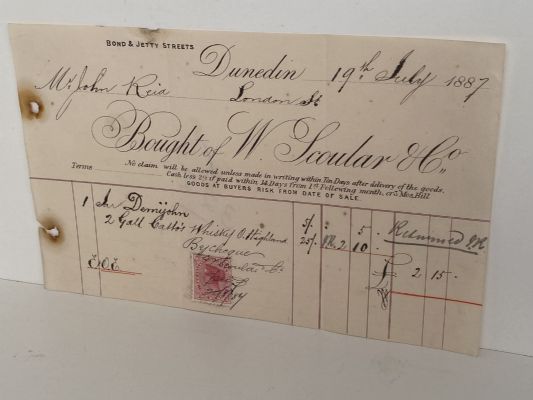 BOND & JETTY STREETS
Dunedin 19th July 1887
Mr John Reid
London St
Bought of W. Scoular & Co.
Terms No claim will be allowed unless made in writing within Ten Days after delivery of the goods.
Cash less 2½ if paid within 14 Days from 1st Following month,
GOODS AT BUYERS RISK FROM DATE OF SALE.
1 Jar Demijohn 5/- : 5 . Returned
2 Galls Catto's Whisky O. Highland 25/- 2 10 .
By cheque
£ 2 15 .